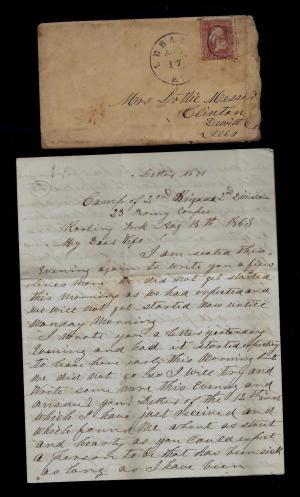 LEBAN
AUG
17
K
Mrs Dottie Messer
Clinton
Dewitt
Ills
Letter No 1
Camp of 2nd Brigade 2nd Division
23 Army Corpse
Aug 15th 1863
My Dear Wife
I am seated this
Evening again to write you a few
lines more We did not get started
this Morning as we had expected and
we will not get started Now until
Monday Morning
I wrote you a letter yesterday
Evening and had it started
to leave here early this Morning but
we did not go So I will try and
Write some more this Evening and
answer your Letter of the 12 Inst
which I have just received and
which found me about as stout
and hearty as you could expect
a person to be that has been sick
as long as I have been